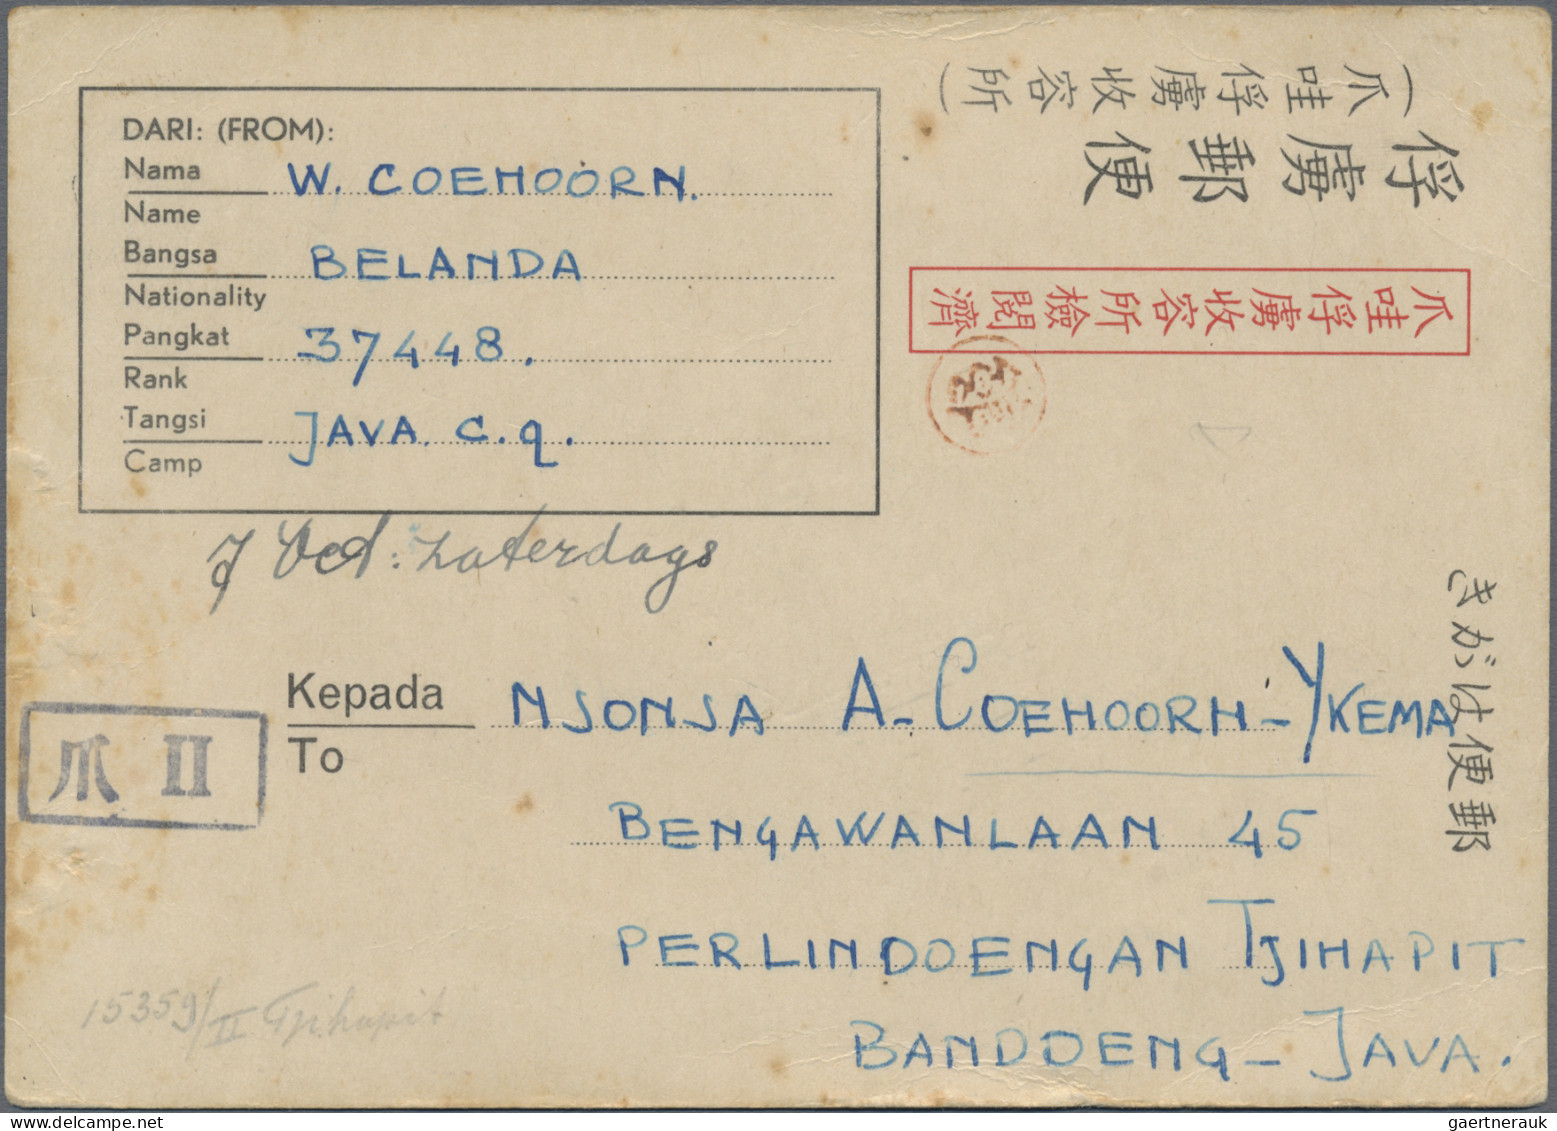 DARI: (FROM):
Nama W. COEHOORN.
Name
Bangsa BELANDA
Nationality
Pangkat 37448.
Rank
Tangsi JAVA. c.q.
Camp
(爪哇俘虜收容所)
俘虜郵便
爪哇俘虜收容所檢閲濟
7 Oct: zaterdags
きがは便郵
爪 II
Kepada NJONJA A- COEHOORN-YKEMA
To
BENGAWANLAAN 45
PERLINDOENGAN TJIHAPIT
BANDOENG- JAVA.
15359/II Tjihapit
gaertnerauk